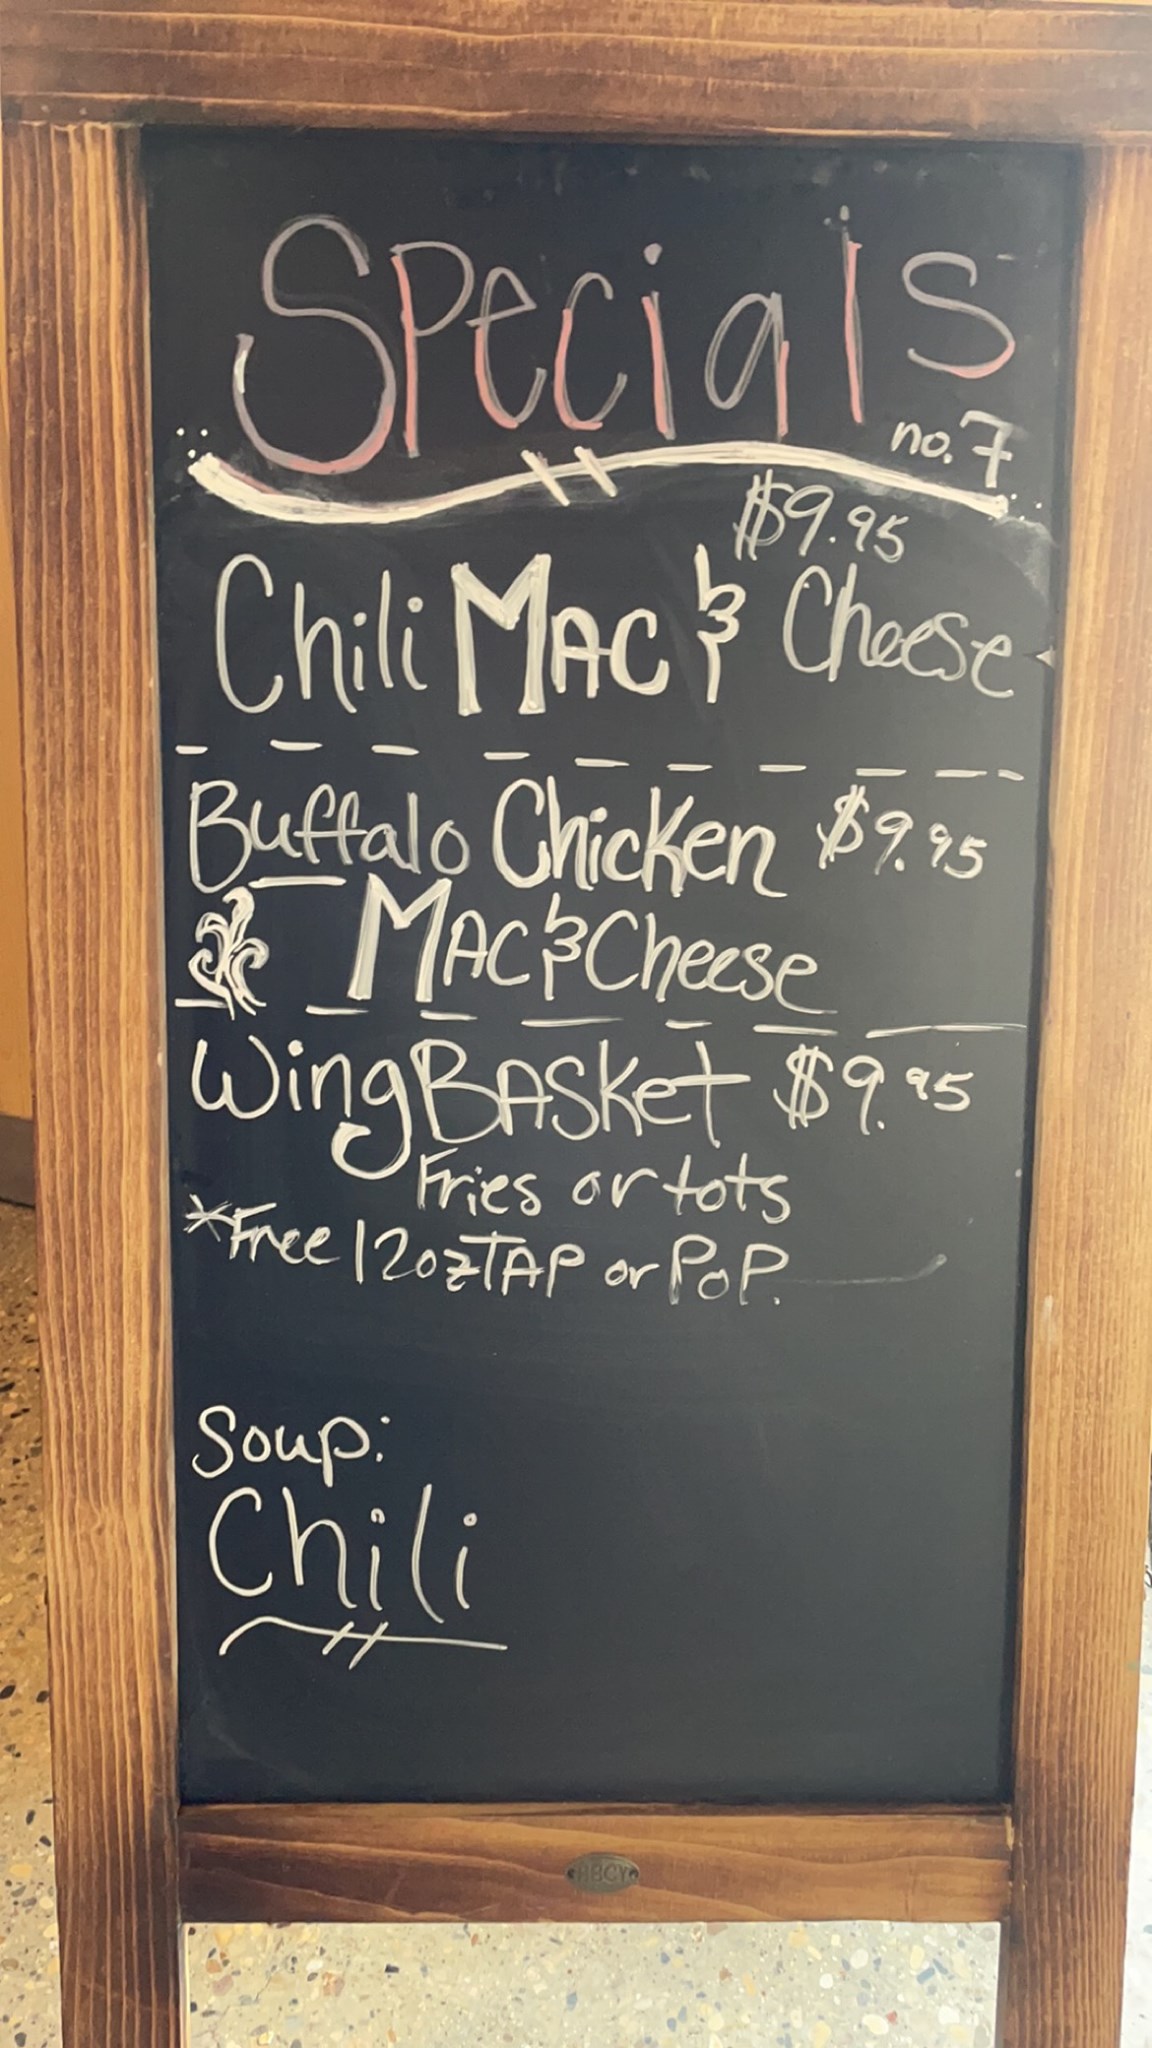 Specials
no. 7
$9.95
Chili MAC & Cheese
Buffalo Chicken $9.95
MAC & Cheese
Wing BASKet $9.95
Fries or tots
*Free 12oz TAP or PoP.
Soup:
Chili
ABCY